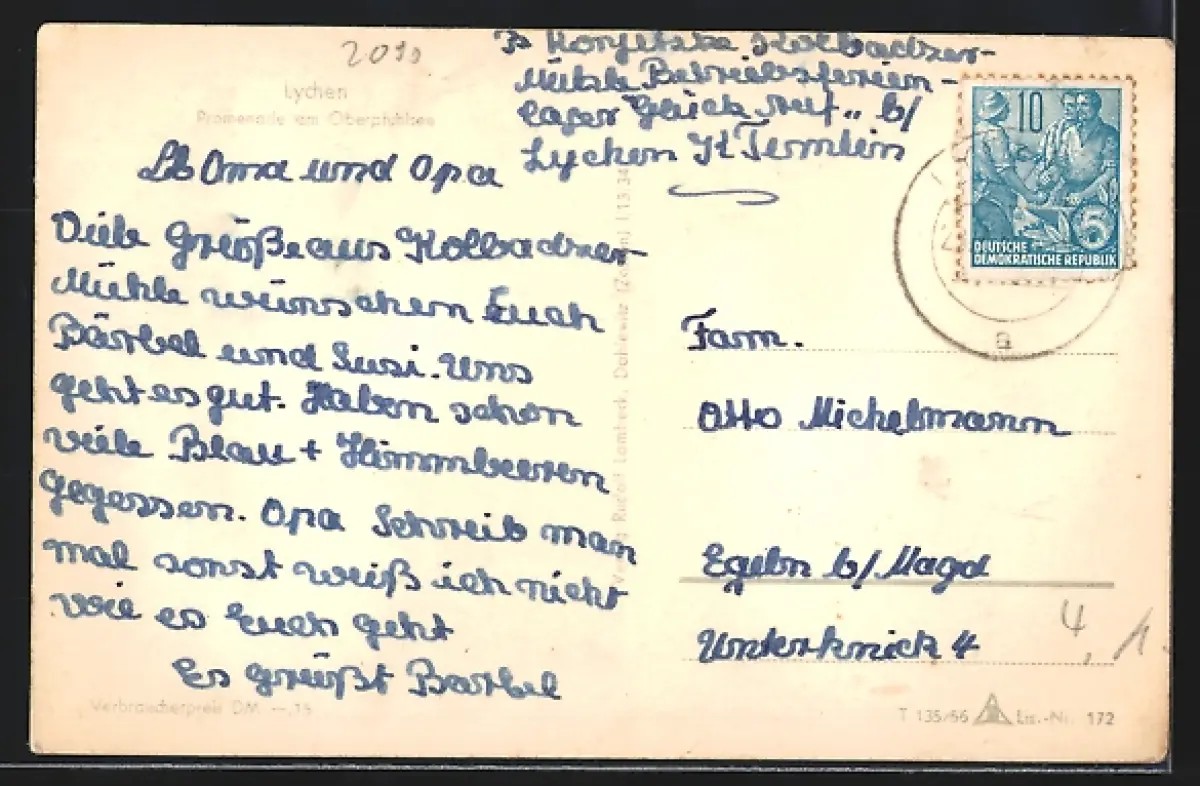 2019
Lychen
Promenade am Oberpfuhlsee
B Konjetzke Kolbatzer-
Mühle Betriebsferien-
lager Glück Auf" b/
Lychen K Templin
Lb Oma und Opa
Viele Grüße aus Kolbatzer-
Mühle wünschen Euch
Bärbel und Susi. Uns
geht es gut. Haben schon
viele Blau + Himmbeeren
gegessen. Opa Schreib man
mal sonst weiß ich nicht
wie es Euch geht
Es grüßt Barbel
Verbraucherpreis DM
Rudolf Lambeck, Dahlewitz (Zossen) I 13 34
10
5
DEUTSCHE
DEMOKRATISCHE REPUBLIK
a
Fam.
Otto Michelmann
Egeln b/Magd
Unterknick 4
4
T 135/56 Lis.-Nr. 172